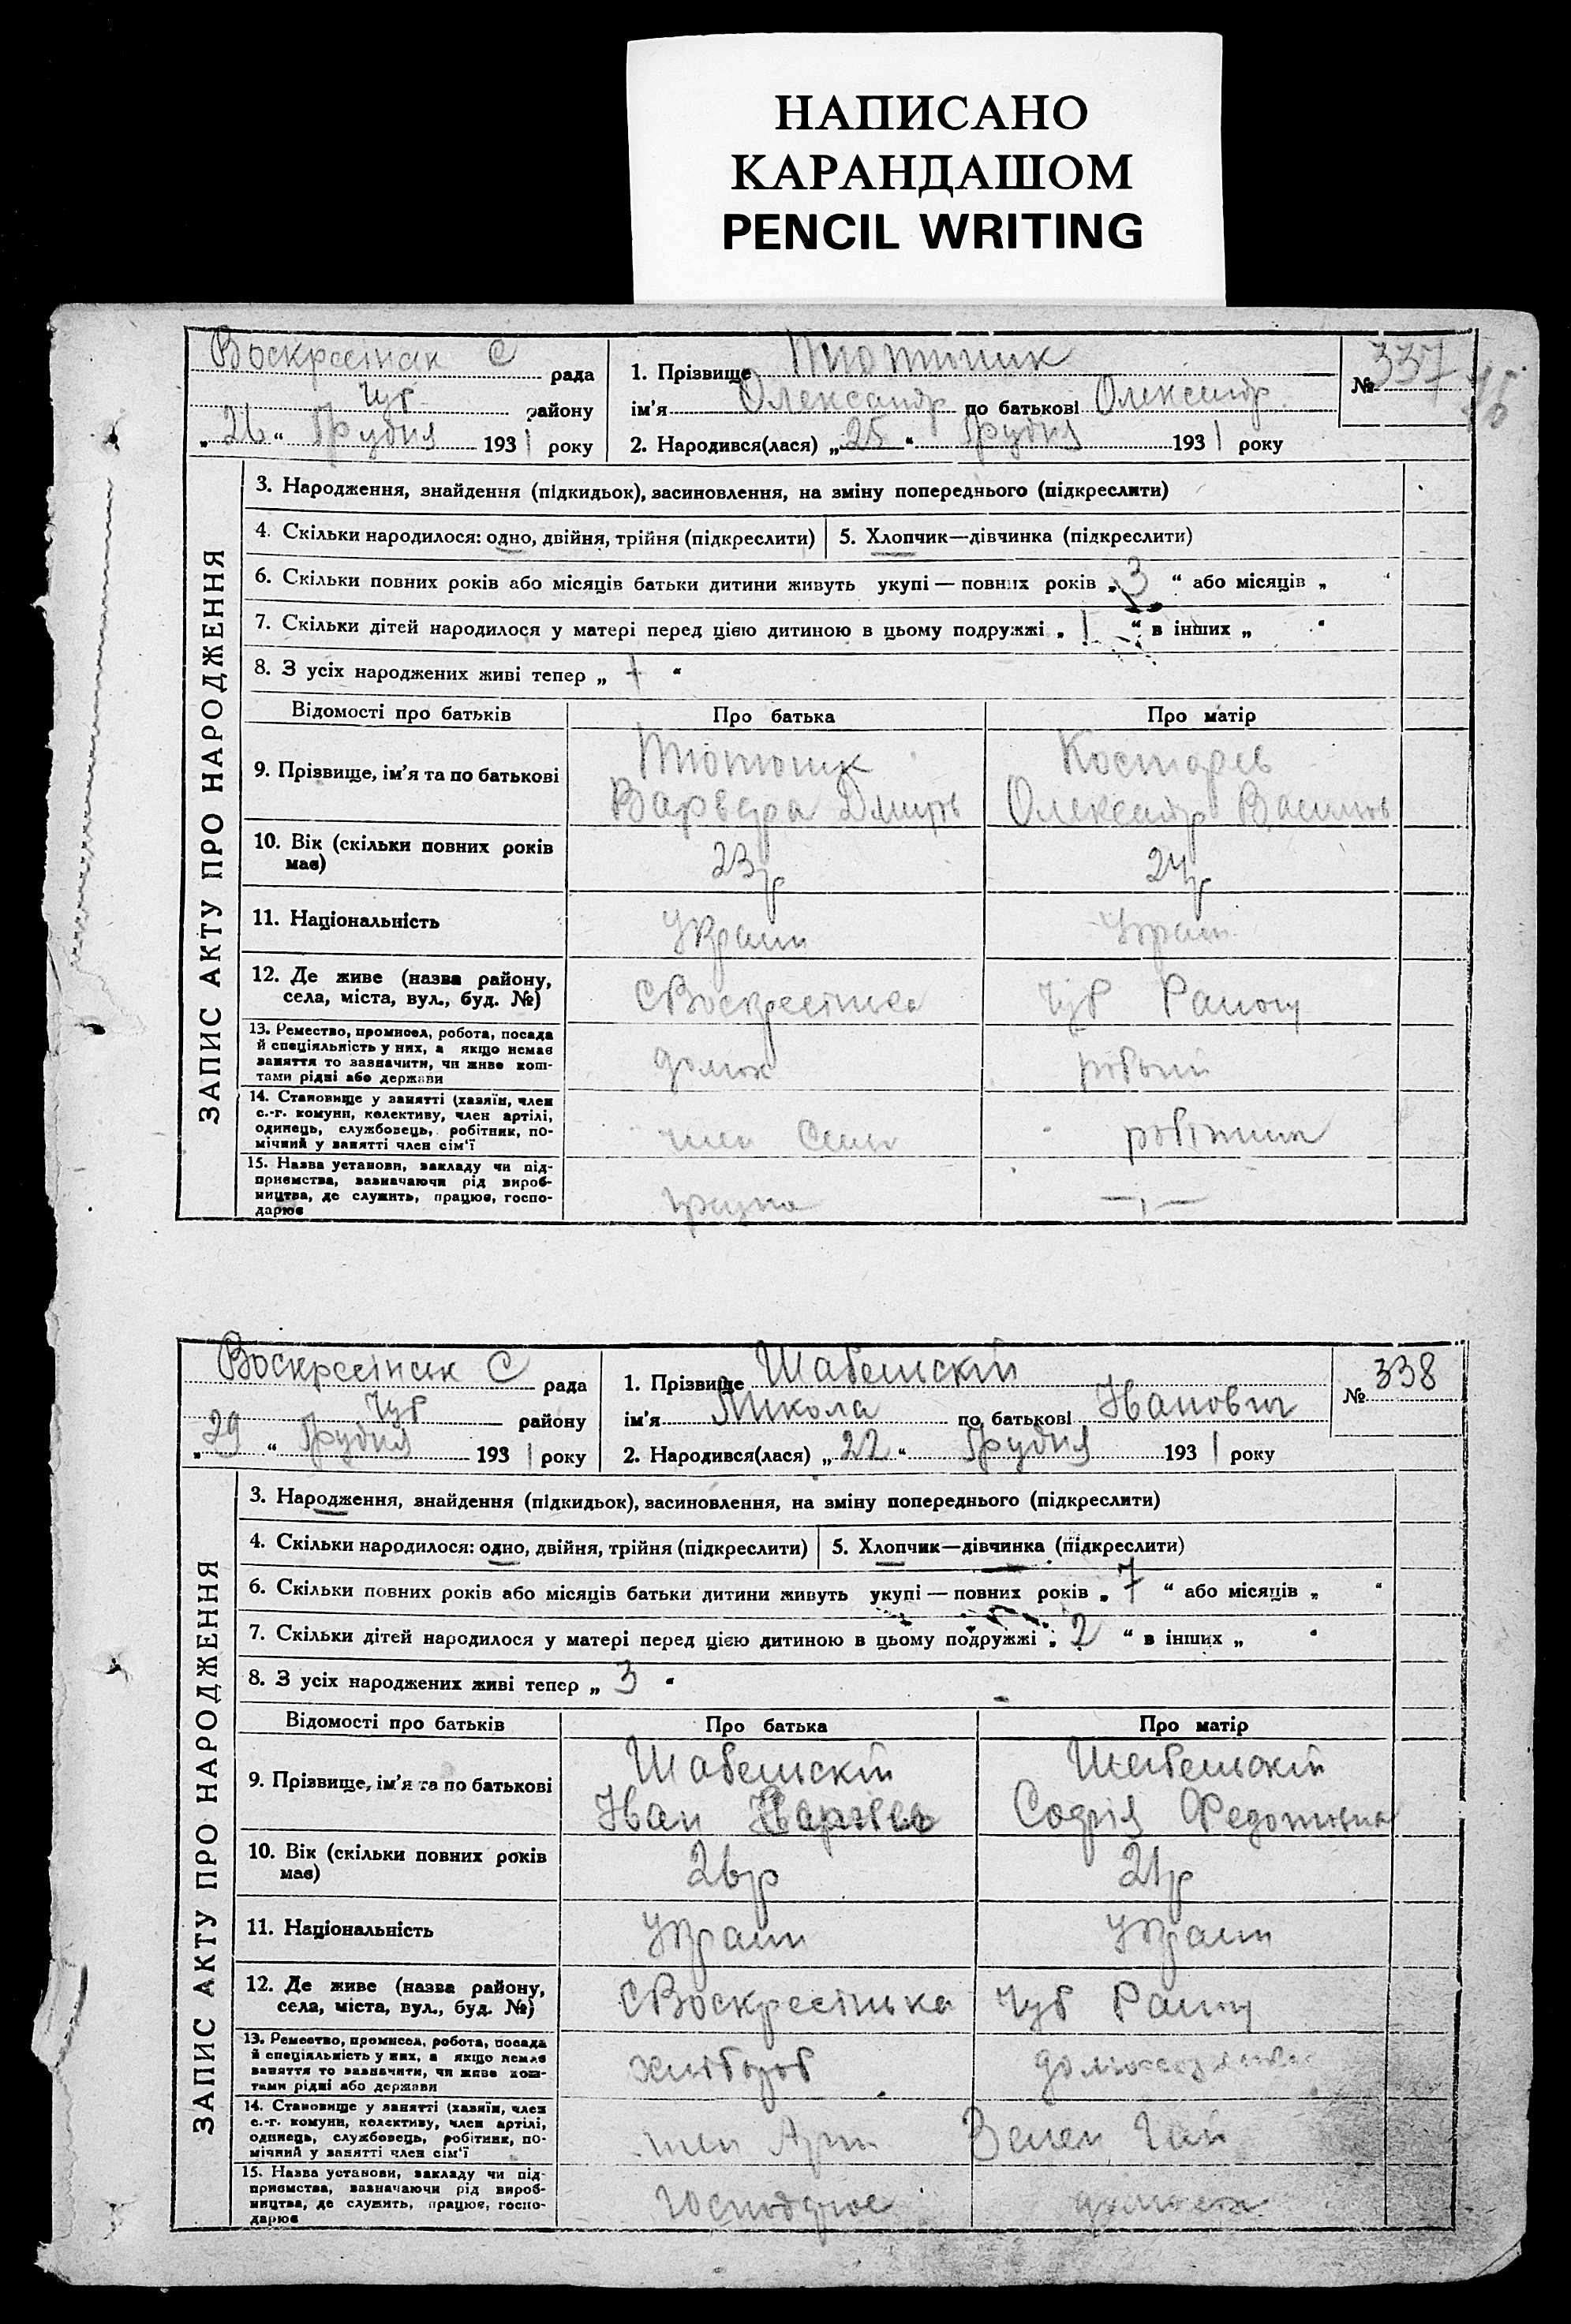 НАПИСАНО
КАРАНДАШОМ
PENCIL WRITING
Воскресінськ С рада
Чуб району
„26“ Грудня 1931 року
1. Прізвище Тютюник
ім'я Олександр по батькові Олександр
2. Народився(лася) „25“ Грудня 1931 року
№ 337
ЗАПИС АКТУ ПРО НАРОДЖЕННЯ
3. Народження, знайдення (підкидьок), засиновлення, на зміну попереднього (підкреслити)
4. Скільки народилося: одно, двійня, трійня (підкреслити) 5. Хлопчик—дівчинка (підкреслити)
6. Скільки повних років або місяців батьки дитини живуть укупі — повних років „3“ або місяців „ “
7. Скільки дітей народилося у матері перед цією дитиною в цьому подружжі „1“ в інших „ “
8. З усіх народжених живі тепер „ “
Відомості про батьків Про батька Про матір
9. Прізвище, ім'я та по батькові
Тютюник
Варвара Дмитр
Костарев
Олександр Васильов
10. Вік (скільки повних років
має)
23р
24р
11. Національність Україн Україн
12. Де живе (назва району,
села, міста, вул., буд. №)
С Воскресінка Чуб Району
13. Ремество, промисел, робота, посада
й спеціяльність у них, а якщо немає
заняття то зазначити, чи живе кош-
тами рідні або держави
домох
14. Становище у занятті (хазяїн, член
с.-г. комуни, колективу, член артілі,
одинець, службовець, робітник, по-
мічний у занятті член сім'ї
член Семї робітник
15. Назва установи, закладу чи під-
приємства, зазначаючи рід вироб-
ництва, де служить, працює, госпо-
дарює
Воскресінськ С рада
Чуб району
„29“ Грудня 1931 року
1. Прізвище Шабельскій
ім'я Микола по батькові Іванович
2. Народився(лася) „22“ Грудня 1931 року
№ 338
ЗАПИС АКТУ ПРО НАРОДЖЕННЯ
3. Народження, знайдення (підкидьок), засиновлення, на зміну попереднього (підкреслити)
4. Скільки народилося: одно, двійня, трійня (підкреслити) 5. Хлопчик—дівчинка (підкреслити)
6. Скільки повних років або місяців батьки дитини живуть укупі — повних років „7“ або місяців „ “
7. Скільки дітей народилося у матері перед цією дитиною в цьому подружжі „2“ в інших „ “
8. З усіх народжених живі тепер „3“
Відомості про батьків Про батька Про матір
9. Прізвище, ім'я та по батькові
Шабельскій
Іван
Шабельскій
Софія Федотівна
10. Вік (скільки повних років
має)
26р
21р
11. Національність Україн Україн
12. Де живе (назва району,
села, міста, вул., буд. №)
С Воскресінька Чуб Району
13. Ремество, промисел, робота, посада
й спеціяльність у них, а якщо немає
заняття то зазначити, чи живе кош-
тами рідні або держави
хлібороб
14. Становище у занятті (хазяїн, член
с.-г. комуни, колективу, член артілі,
одинець, службовець, робітник, по-
мічний у занятті член сім'ї
член Арт Зелен Гай
15. Назва установи, закладу чи під-
приємства, зазначаючи рід вироб-
ництва, де служить, працює, госпо-
дарює